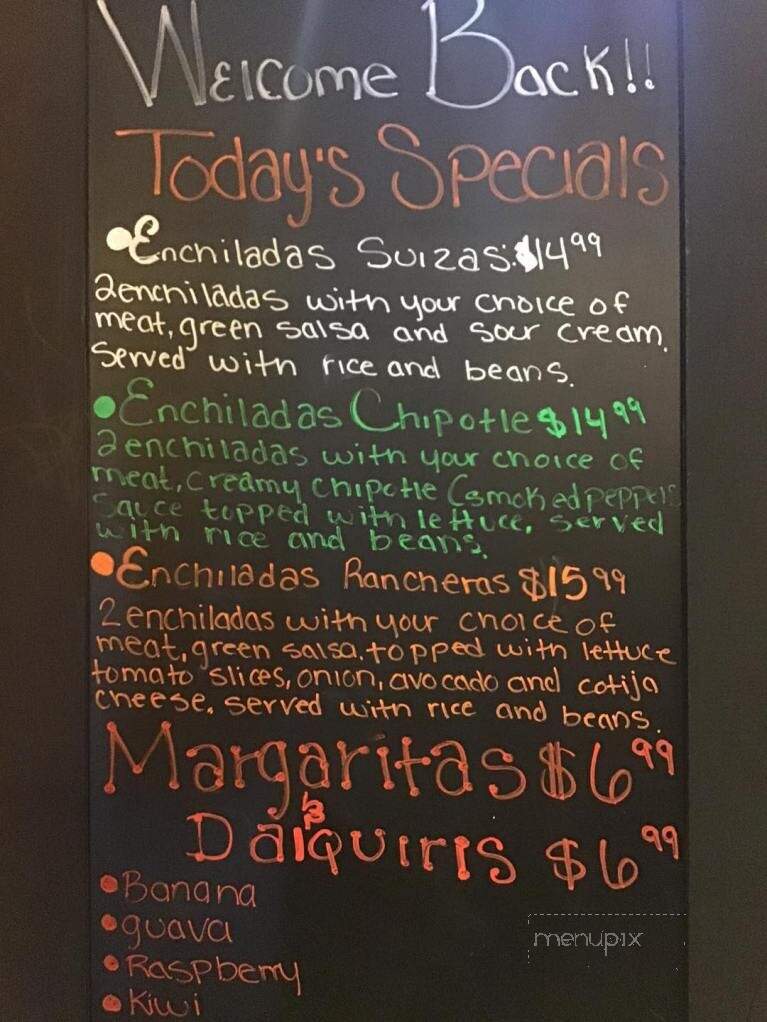 Welcome Back!!
Today's Specials
Enchiladas Suizas: $14.99
2 enchiladas with your choice of
meat, green salsa and sour cream.
Served with rice and beans.
Enchiladas Chipotle $14.99
2 enchiladas with your choice of
meat, creamy chipotle (smoked peppers
Sauce topped with lettuce, served
with rice and beans.
Enchiladas Rancheras $15.99
2 enchiladas with your choice of
meat, green salsa. topped with lettuce
tomato slices, onion, avocado and cotija
cheese. served with rice and beans.
Margaritas $6.99
& Daiquiris $6.99
Banana
guava
Raspberry
Kiwi
menupix